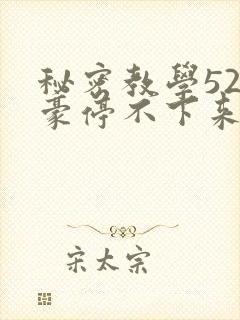 秘密教學52
豪停不下來
宋太宗